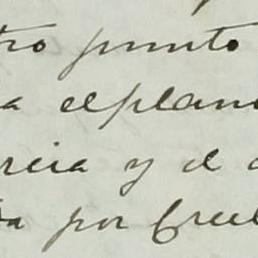 tro punto
a el plan
rcia y el
a por Cruel